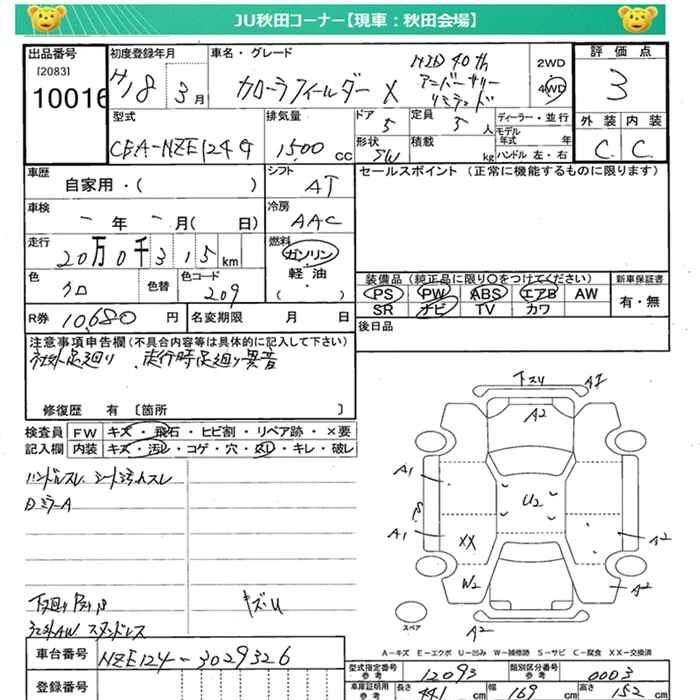 JU秋田コーナー【現車：秋田会場】
出品番号 初度登録年月 車名・グレード 評価点
[2083]
10016 H18 3月 カローラフィールダー X HID 40th アニバーサリー リミテッド 2WD 4WD 3
型式 排気量 ドア 定員 ディーラー・並行 外装 内装
CBA-NZE124G 1500cc 5 5人 モデル年式 年 C C
形状 SW 積載 kg ハンドル 左・右
車歴 シフト セールスポイント（正常に機能するものに限ります）
自家用・（ ） AT
車検 冷房
年 月（ 日） AAC
走行 燃料
20万0千315km ガソリン・軽油・（ ）
色 色替 色コード 装備品（純正品に限り○をつけてください） 新車保証書
クロ 209 PS PW ABS エアB AW 有・無
SR ナビ TV カワ
R券 10,680円 名変期限 月 日 後日品
注意事項申告欄（不具合内容等は具体的に記入して下さい）
社外足廻り、走行時足廻り異音
修復歴 有〔箇所 〕
検査員 FW キズ・飛石・ヒビ割・リペア跡・×要
記入欄 内装 キズ・汚レ・コゲ・穴・スレ・キレ・破レ
ハンドルスレ シート汚れスレ
DミラーA
下スリ A7
A2
A1 U2
A1 XX A2
W2 A2
スペア A2
下廻り キズU
社外AW スタッドレス
A－キズ E－エクボ U－凹み W－補修跡 S－サビ C－腐食 XX－交換済
車台番号 NZE124-3029326 型式指定番号 参考 12093 類別区分番号 参考 0003
登録番号 車庫証明用 参考 長さ 441cm 幅 169cm 高さ 152cm